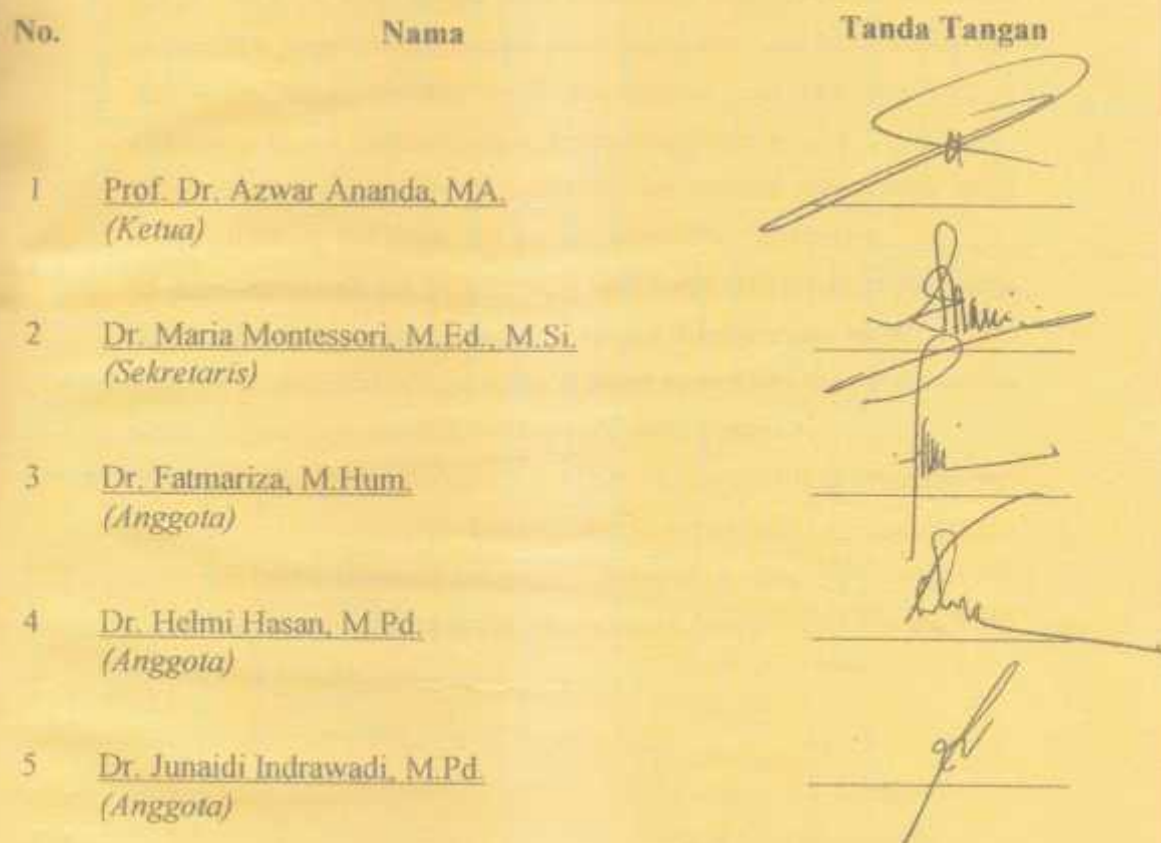 No. Nama Tanda Tangan
1 Prof. Dr. Azwar Ananda, MA.
(Ketua)
2 Dr. Maria Montessori, M.Ed., M.Si.
(Sekretaris)
3 Dr. Fatmariza, M.Hum.
(Anggota)
4 Dr. Helmi Hasan, M.Pd.
(Anggota)
5 Dr. Junaidi Indrawadi, M.Pd.
(Anggota)